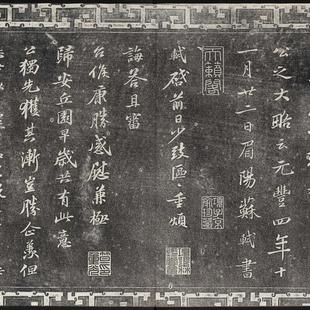 公之大略云元豐四年十
一月廿二日眉陽蘇軾書
天籟閣
項子京家珍藏
軾啟前日少致區區重煩
誨答且審
台候康勝感慰兼極
歸安丘園早歲共有此意
公獨先獲其漸豈勝企羨但